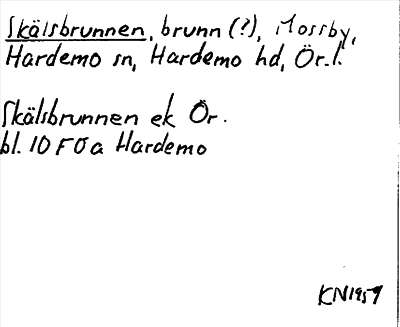 Skälsbrunnen, brunn (?), Mossby,
Hardemo sn, Hardemo hd, Ör. l.
Skälsbrunnen ek Ör.
bl. 10 F 0 a Hardemo
KN 1959